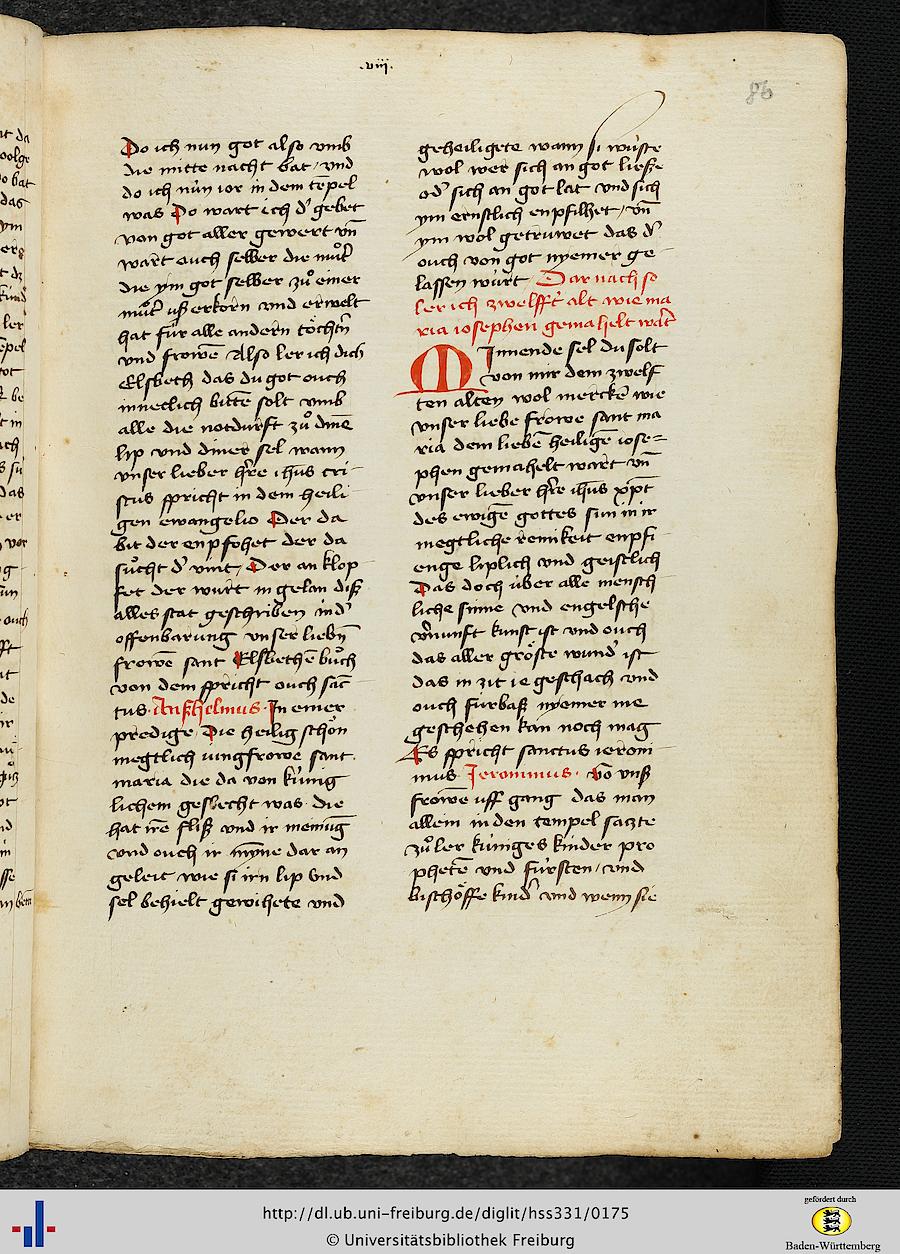 .viij.
86
Do ich nun got also vmb
die mitte nacht bat / vnd
do ich nún ior in dem tēpel
was Do wart ich d' gebet
von got aller gewert vn̄
wart ouch selber die mut'
die ym got selber zuͦ einer
muͦt' vß erkorn vnd erwelt
hat fúr alle andern toͤcht'n
vnd frowē Also ler ich dich
Elsbeth das du got ouch
inneclich bittē solt vmb
alle die notdurft zuͦ dinē
lip vnd diner sel wann
vnser lieber h're ih̄us cri-
stus spricht in dem heili-
gen ewangelio Der da
bit der enpfohet der da
suͦcht d' vint / Der an klop
fet der wúrt in gelan diß
alles stat geschriben in d'
offenbarung vnser liebn̄
frowē sant Elsbethē buͦch
von dem spricht ouch sāc
tus Anßhelmus In einer
predige Die heilig schoͤn
megtlich iungfrowe sant
maria die da von kúnig
lichem geslecht was die
hat irē fliß vnd ir meinūg
vnd ouch ir mȳne dar an
geleit wie si irn lip vnd
sel behielt gewihete vnd
geheiligete wann si wúste
wol wer sich an got liesse
od' sich an got lat vnd sich
ym ernstlich enpfilhet / vn̄
ym wol getruwet das d'
ouch von got nyemer ge
lassen wúrt Dar nach so
ler ich zwelfft' alt wie ma
ria iosephen gemahelt wart
MInnende sel du solt
von mir dem zwelf
ten alten wol mercken wie
vnser liebe frowe sant ma
ria dem liebē heiligē iose=
phen gemahelt wart vn̄
vnser lieber h're ih̄us xp̄t
des ewigē gottes sun in ir
megtliche reinikeit enpfi
enge liplich vnd geistlich
Das doch úber alle mensch
liche sinne vnd engelsche
v'nunft kunst ist vnd ouch
das aller groͤste wund' ist
das in zit ie geschach vnd
ouch fúrbaß nyemer me
geschehen kan noch mag
Es spricht sanctus ieroni
mus Ieronimus. Vō vnß
frowē vff gang das man
allein in den tempel satzte
zuͦ ler kúnges kinder pro
phetē vnd fúrsten / vnd
bischoͤffe kind' vnd wenn sie
http://dl.ub.uni-freiburg.de/diglit/hss331/0175
© Universitätsbibliothek Freiburg
gefördert durch
Baden-Württemberg